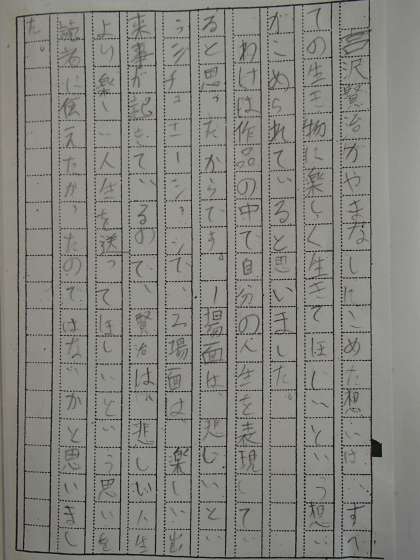 宮沢賢治がやまなしにこめた想いは、すべ
ての生き物に楽しく生きてほしいという想い
がこめられていると思いました。
わけは作品の中で自分の人生を表現して
ると思ったからです。一場面は、悲しいとい
シチュエーションで、二場面は、楽しい出
来事が記きているので、賢治は、悲しい人生
より楽しい人生を送ってほしいという思いを
読者に伝えたかったのではないかと思いまし
た。